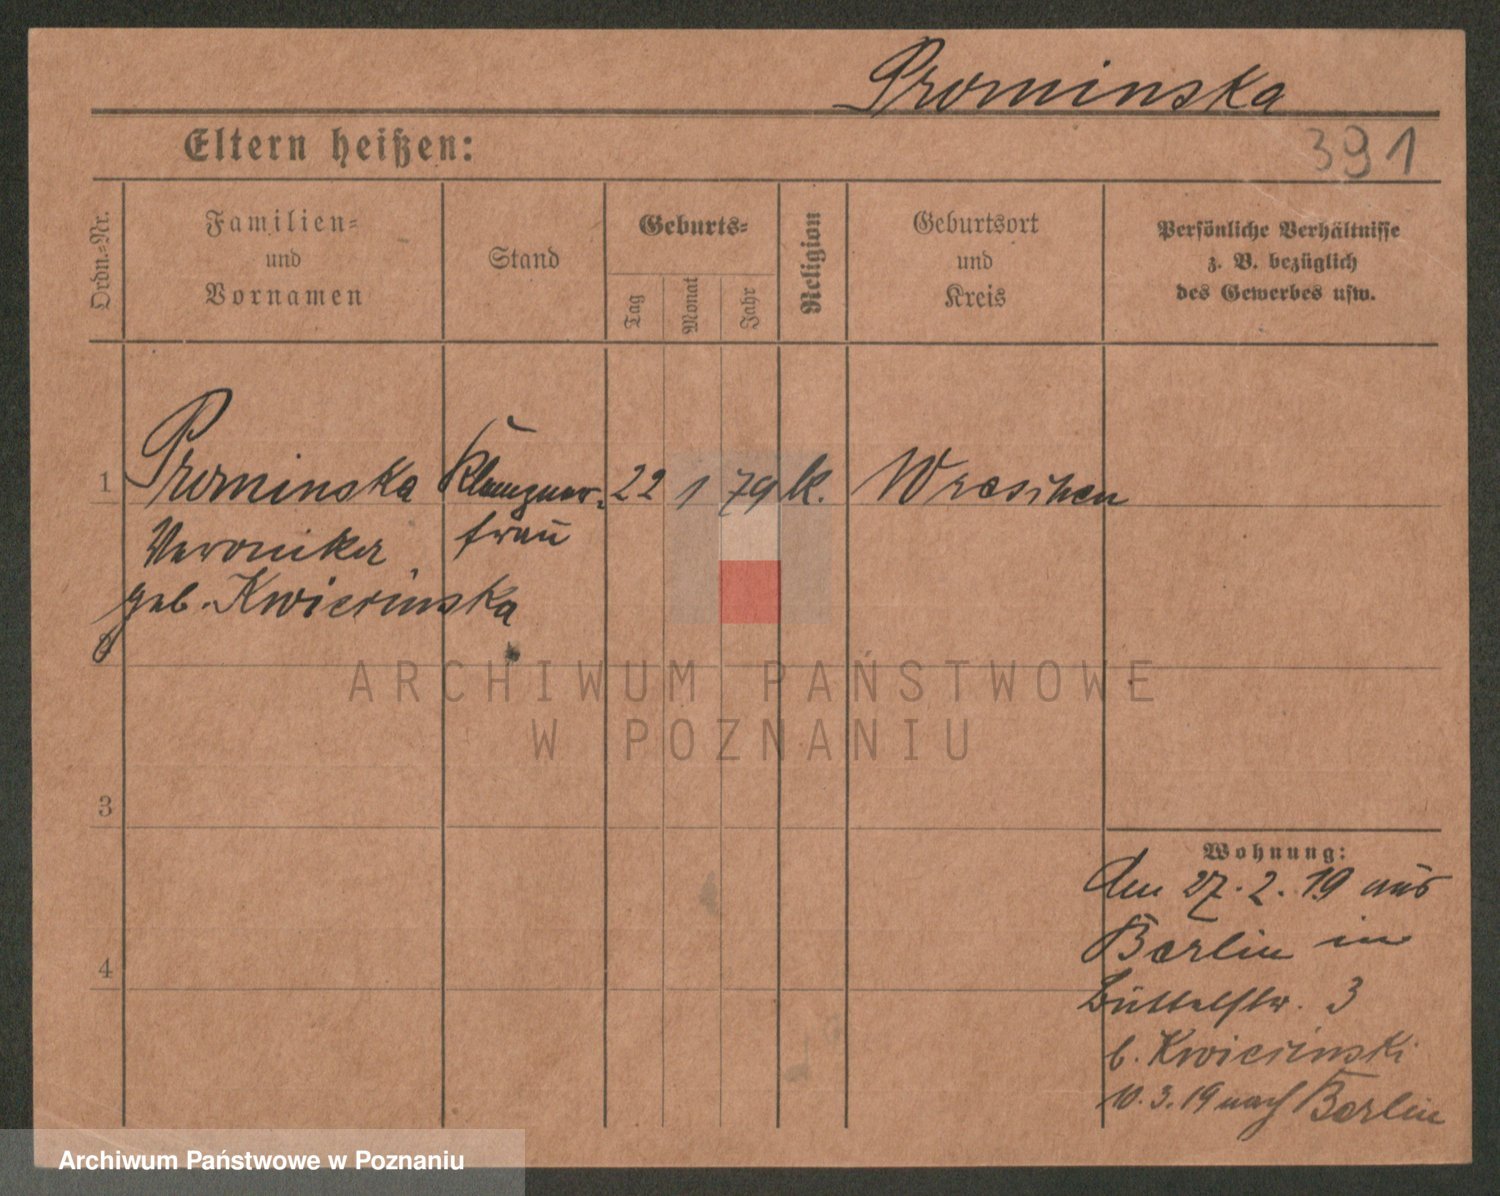 Prominska
Eltern heißen:
391
Ordn.-Nr.
Familien-
und
Vornamen
Stand
Geburts-
Tag
Monat
Jahr
Religion
Geburtsort
und
Kreis
Persönliche Verhältnisse
z. B. bezüglich
des Gewerbes usw.
1 Prominska Klempner- 22 1 79 k. Wreschen
Veronika frau
geb. Kwiecinska
ARCHIWUM PAŃSTWOWE
W POZNANIU
3
4
Wohnung:
Am 27.2.19 aus
Berlin in
Büttelstr. 3
b. Kwiecinski
10.3.19 nach Berlin
Archiwum Państwowe w Poznaniu